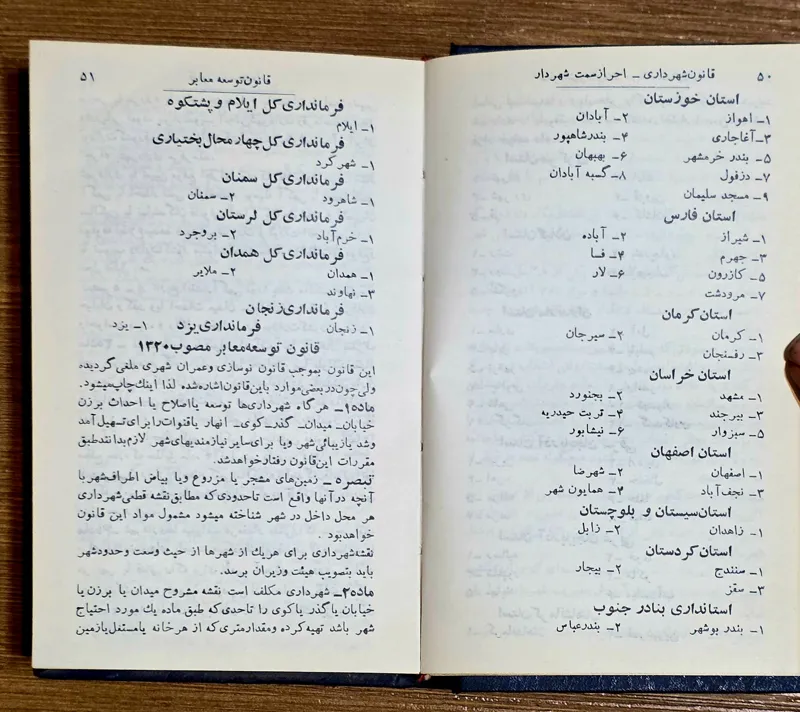 ۵۰ قانون شهرداری ـ احراز سمت شهردار
استان خوزستان
۱ـ اهواز ۲ـ آبادان
۳ـ آغاجاری ۴ـ بندر شاهپور
۵ـ بندر خرمشهر ۶ـ بهبهان
۷ـ دزفول ۸ـ گسبه آبادان
۹ـ مسجد سلیمان
استان فارس
۱ـ شیراز ۲ـ آباده
۳ـ جهرم ۴ـ فسا
۵ـ کازرون ۶ـ لار
۷ـ مرودشت
استان کرمان
۱ـ کرمان ۲ـ سیرجان
۳ـ رفسنجان
استان خراسان
۱ـ مشهد ۲ـ بجنورد
۳ـ بیرجند ۴ـ تربت حیدریه
۵ـ سبزوار ۶ـ نیشابور
استان اصفهان
۱ـ اصفهان ۲ـ شهرضا
۳ـ نجف آباد ۴ـ همایون شهر
استان سیستان و بلوچستان
۱ـ زاهدان ۲ـ زابل
استان کردستان
۱ـ سنندج ۲ـ بیجار
۳ـ سقز
استانداری بنادر جنوب
۱ـ بندر بوشهر ۲ـ بندرعباس
قانون توسعه معابر ۵۱
فرمانداری کل ایلام و پشتکوه
۱ـ ایلام
فرمانداری کل چهار محال بختیاری
۱ـ شهر کرد
فرمانداری کل سمنان
۱ـ شاهرود ۲ـ سمنان
فرمانداری کل لرستان
۱ـ خرم آباد ۲ـ بروجرد
فرمانداری کل همدان
۱ـ همدان ۲ـ ملایر
۳ـ نهاوند
فرمانداری زنجان
۱ـ زنجان فرمانداری یزد ۱ـ یزد
قانون توسعه معابر مصوب ۱۳۲۰
این قانون بموجب قانون نوسازی وعمران شهری ملغی گردیده
ولی چون دربعضی موارد باین قانون اشاره شده لذا اینك چاپ میشود.
ماده۱ـ هرگاه شهرداری‌ها توسعه یااصلاح یا احداث برزن
خیابان ـ میدان ـ گذر ـ کوی ـ انهار یاقنوات رابرای تسهیل آمد
وشد یازیبائی شهر ویا برای سایر نیازمندیهای شهر لازم بدانند طبق
مقررات این قانون رفتار خواهد شد.
تبصره ـ زمین‌های مشجر یا مزروع ویا بیاض اطراف شهر با
آنچه در آنها واقع است تا حدودی که مطابق نقشه قطعی شهرداری
هر محل داخل در شهر شناخته میشود مشمول مواد این قانون
خواهد بود .
نقشه شهرداری برای هر یك از شهرها از حیث وسعت وحدود شهر
باید بتصویب هیئت وزیران برسد.
ماده۲ـ شهرداری مکلف است نقشه مشروح میدان یا برزن یا
خیابان یا گذر یا کوی را تا حدی که طبق ماده یك مورد احتیاج
شهر باشد تهیه کرده ومقدار متری که از هر خانه یا مستغل یا زمین